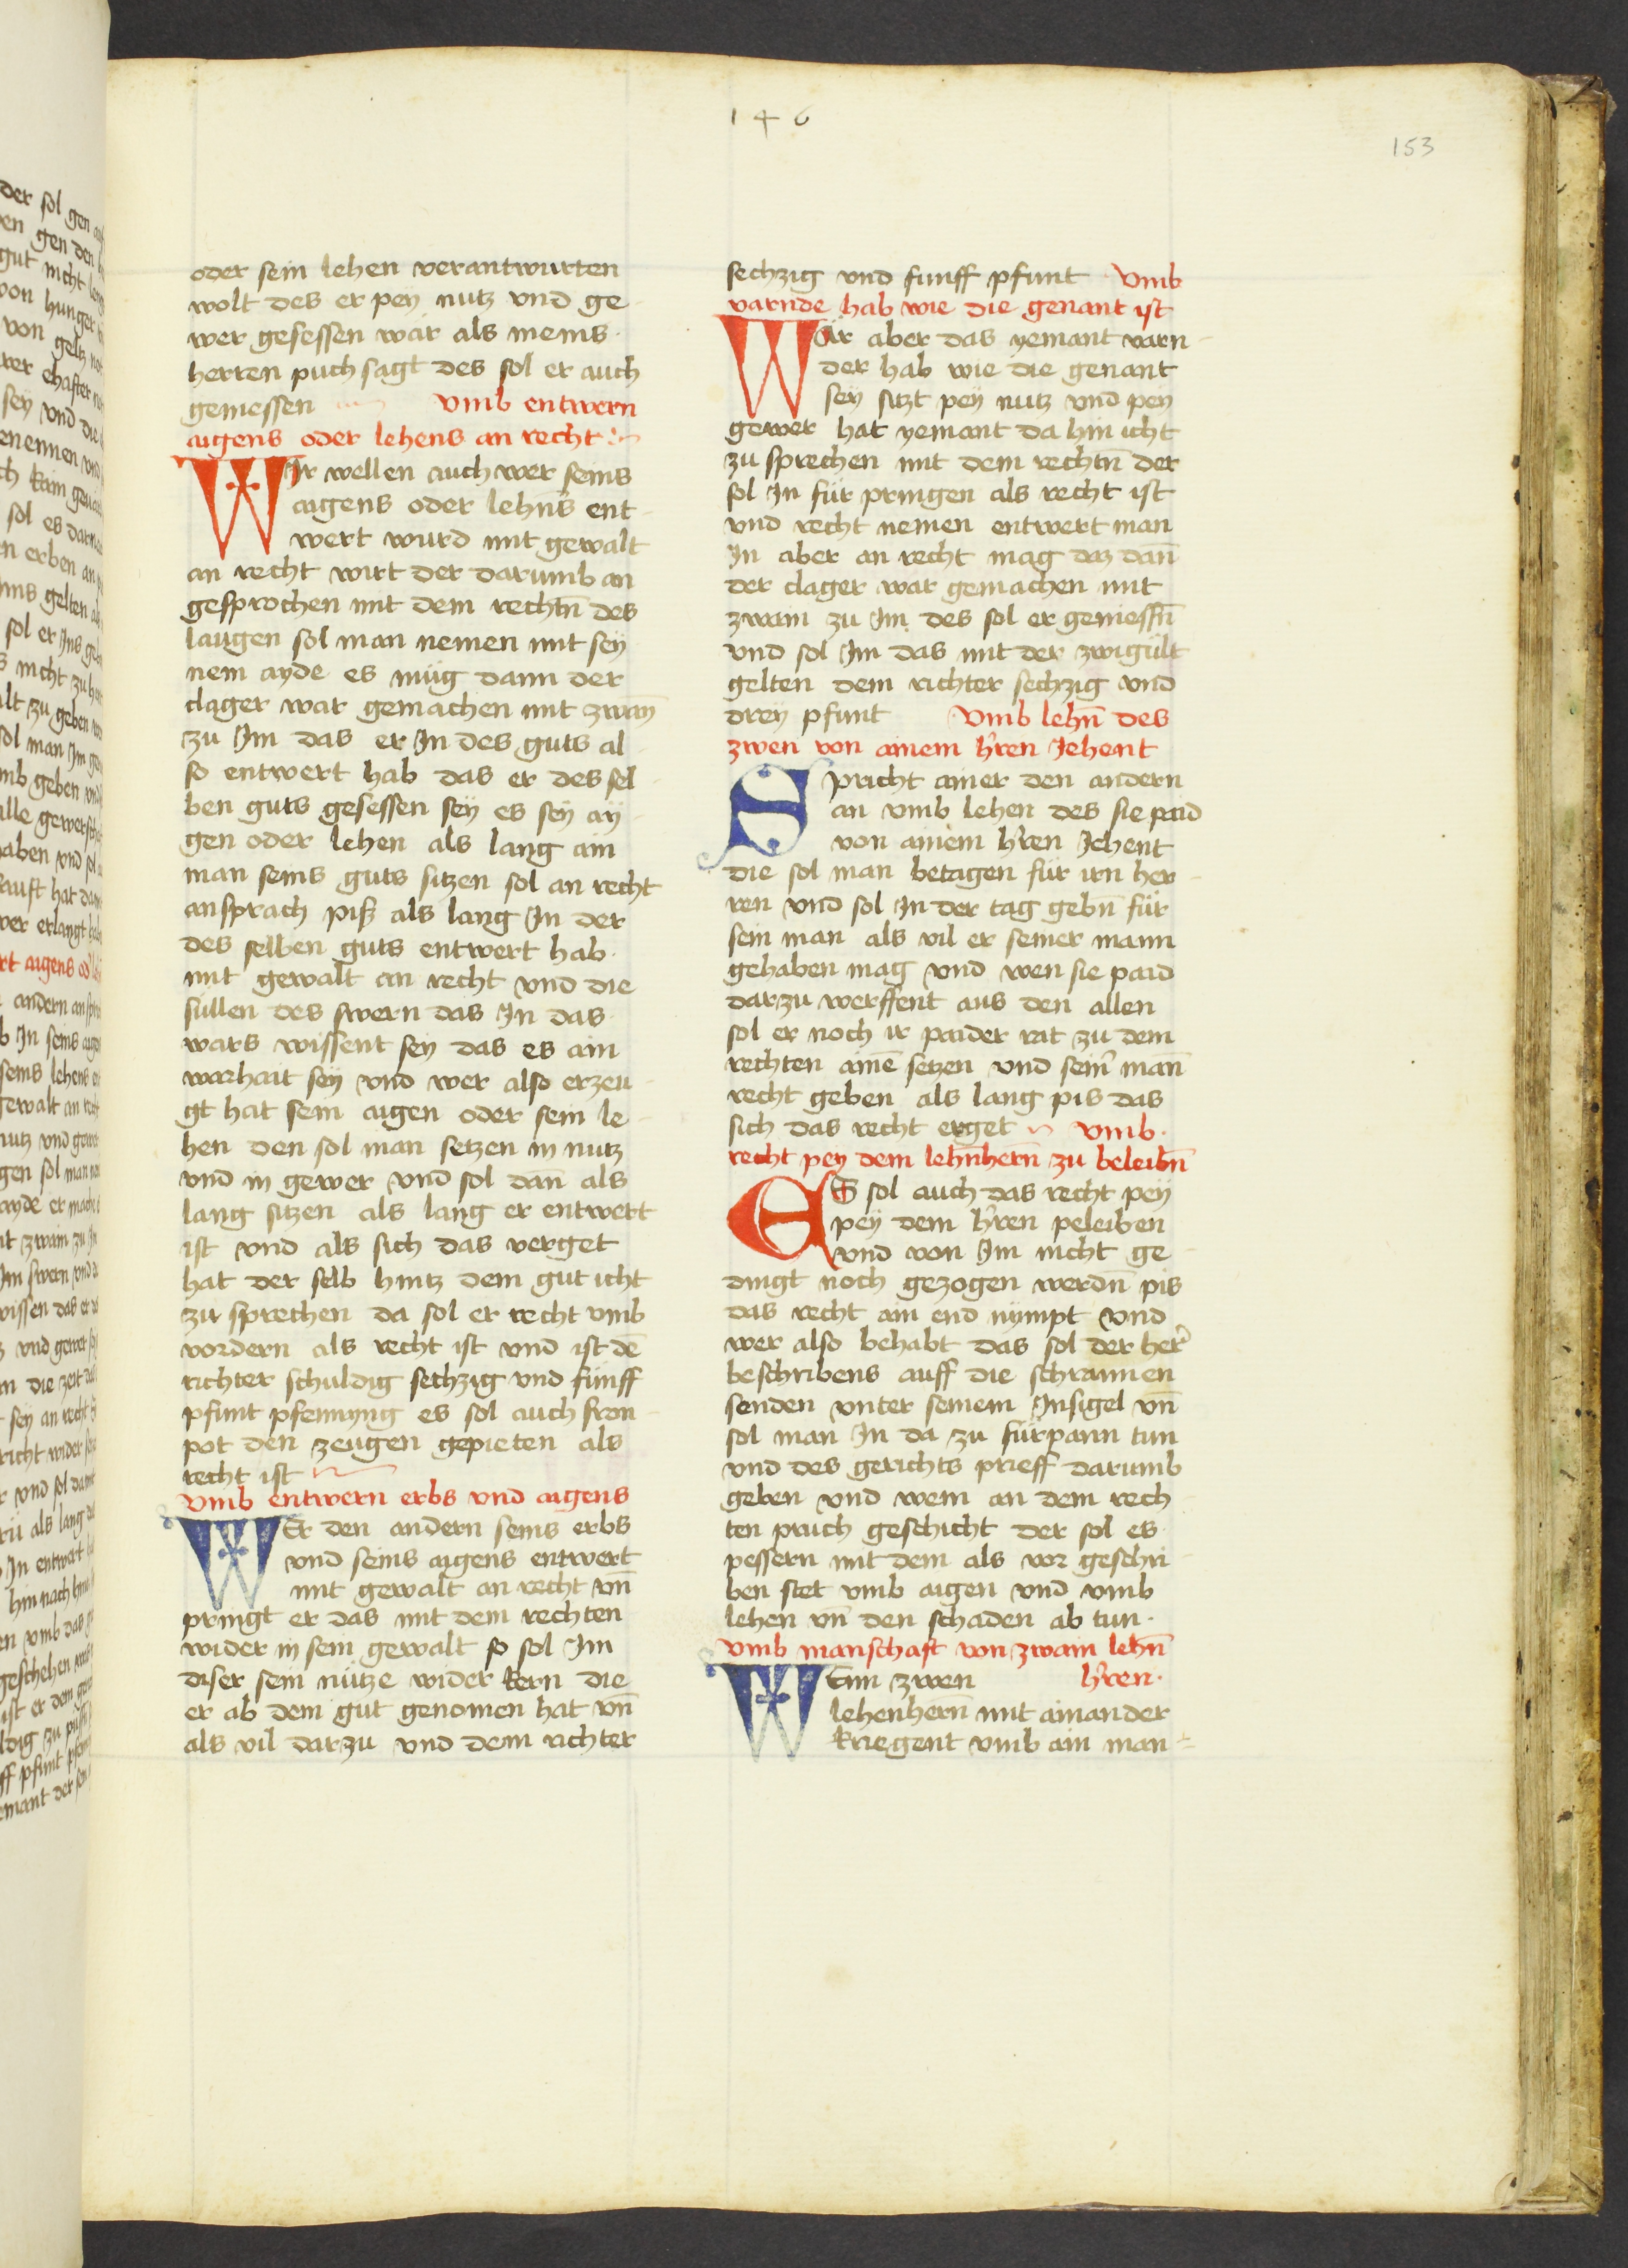 146
153
oder sein lehen verantwurten
wolt des er pey nutz vnd ge
wer gesessen wär als meins
herren puch sagt des sol er auch
geniessen vmb entwern
aigens oder lehens an recht
WIr wellen auch wer seins
aigens oder lehn̄s ent
wert wurd mit gewalt
an recht wirt der darumb an
gesprochen mit dem rechtn̄ des
laugen sol man nemen mit sey
nem ayde es müg dann der
clager war gemachen mit zwaỹ
zu Im das er In des guts al
so entwert hab das er des sel
ben guts gesessen seÿ es seÿ aÿ
gen oder lehen als lang ain
man seins guts sitzen sol an recht
ansprach piß als lang In der
des selben guts entwert hab
mit gewalt an recht vnd die
sullen des swern das In das
wars wissent sey das es ain
warhait seÿ vnd wer also erzeu
gt hat sein aigen oder sein le
hen den sol man setzen in nutz
vnd in gewer vnd sol dan̄ als
lang sitzen als lang er entwert
ist vnd als sich das verget
hat der selb hintz dem gut icht
zu sprechen da sol er recht vmb
vordern als recht ist vnd ist dē
richter schuldig sechzig vnd fünff
pfunt pfennyng es sol auch fron
pot den zeugen gepieten als
recht ist
vmb entwern erbs vnd aigens
WEr den andern seins erbs
vnd seins aigens entwert
mit gewalt an recht vn̄
pringt er das mit dem rechten
wider in sein gewalt so sol Im
diser sein nütze wider kern die
er ab dem gut genomen hat vn̄
als vil darzu vnd dem richter
sechzig vnd funff pfunt vmb
varnde hab wie die genant ist
WÄr aber das yemant varn
der hab wie die genant
seÿ sitzt peÿ nutz vnd pey
gewer hat yemant da hin icht
zu sprechen mit dem rechtn̄ der
sol In für pringen als recht ist
vnd recht nemen entwert man
In aber an recht mag daz dan̄
der clager wär gemachen mit
zwain zu Im des sol er geniessn̄
vnd sol Im das mit der zwigült
gelten dem richter sechzig vnd
dreÿ pfunt vmb lehn̄ des
zwen von ainem h̓ren Jehent
Spricht ainer den andern
an vmb lehen des sie paid
von ainem h̓ren Jehent
die sol man betagen für irn her
ren vnd sol In der tag gebn̄ für
sein man als vil er seiner mann
gehaben mag vnd wen sie paid
darzu werffent aus den allen
sol er noch ir paider rat zu dem
rechten ainē setzen vnd sein̓ man̄
recht geben als lang pis das
sich das recht erget vmb
recht pey dem lehn̄hern̄ zu beleibn̄
ES sol auch das recht peÿ
peÿ dem h̓ren peleiben
vnd von Im nicht ge
dingt noch gezogen werdn̄ pis
das recht ain end nympt vnd
wer also behabt das sol der her̓
beschribens auff die schrannen
senden vnter seinem Insigel vn̄
sol man In da zu fürpann tun
vnd des gerichts prieff darumb
geben vnd wem an dem rech
ten pruch geschicht der sol es
pessern mit dem als vor geschri
ben stet vmb aigen vnd vmb
lehen vn̄ den schaden ab tun
vmb manschaft von zwain lehn̄
h̓ren
WEnn zwen
lehenhern̄ mit ainander
kriegent vmb ain man